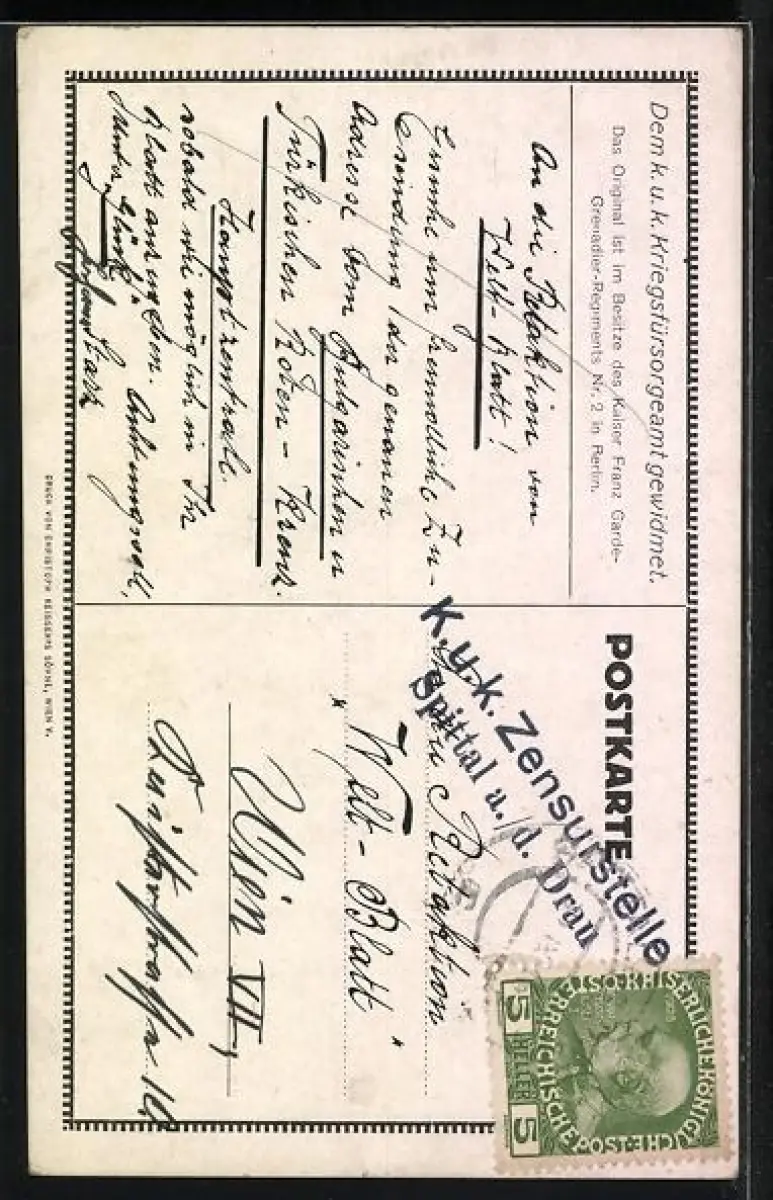 Dem k. u. k. Kriegsfürsorgeamt gewidmet.
Das Original ist im Besitze des Kaiser Franz Garde-
Grenadier-Regiments Nr. 2 in Berlin.
An die Redaktion von
Welt-Blatt!
Ersuche um freundliche Zu-
sendung der genauen
Adresse vom Bulgarischen u
Türkischen Roten-Kreuz.
Hauptzentrale.
sobald wie möglich in Ihr
Blatt
POSTKARTE
K. u. k. Zensurstelle
Spittal a./d. Drau
Redaktion
"Welt-Blatt"
Wien VII,
KAISERLICHE KÖNIGLICHE
ÖSTERREICHISCHE POST
5 HELLER 5
DRUCK VON CHRISTOPH REISSER'S SÖHNE, WIEN V.